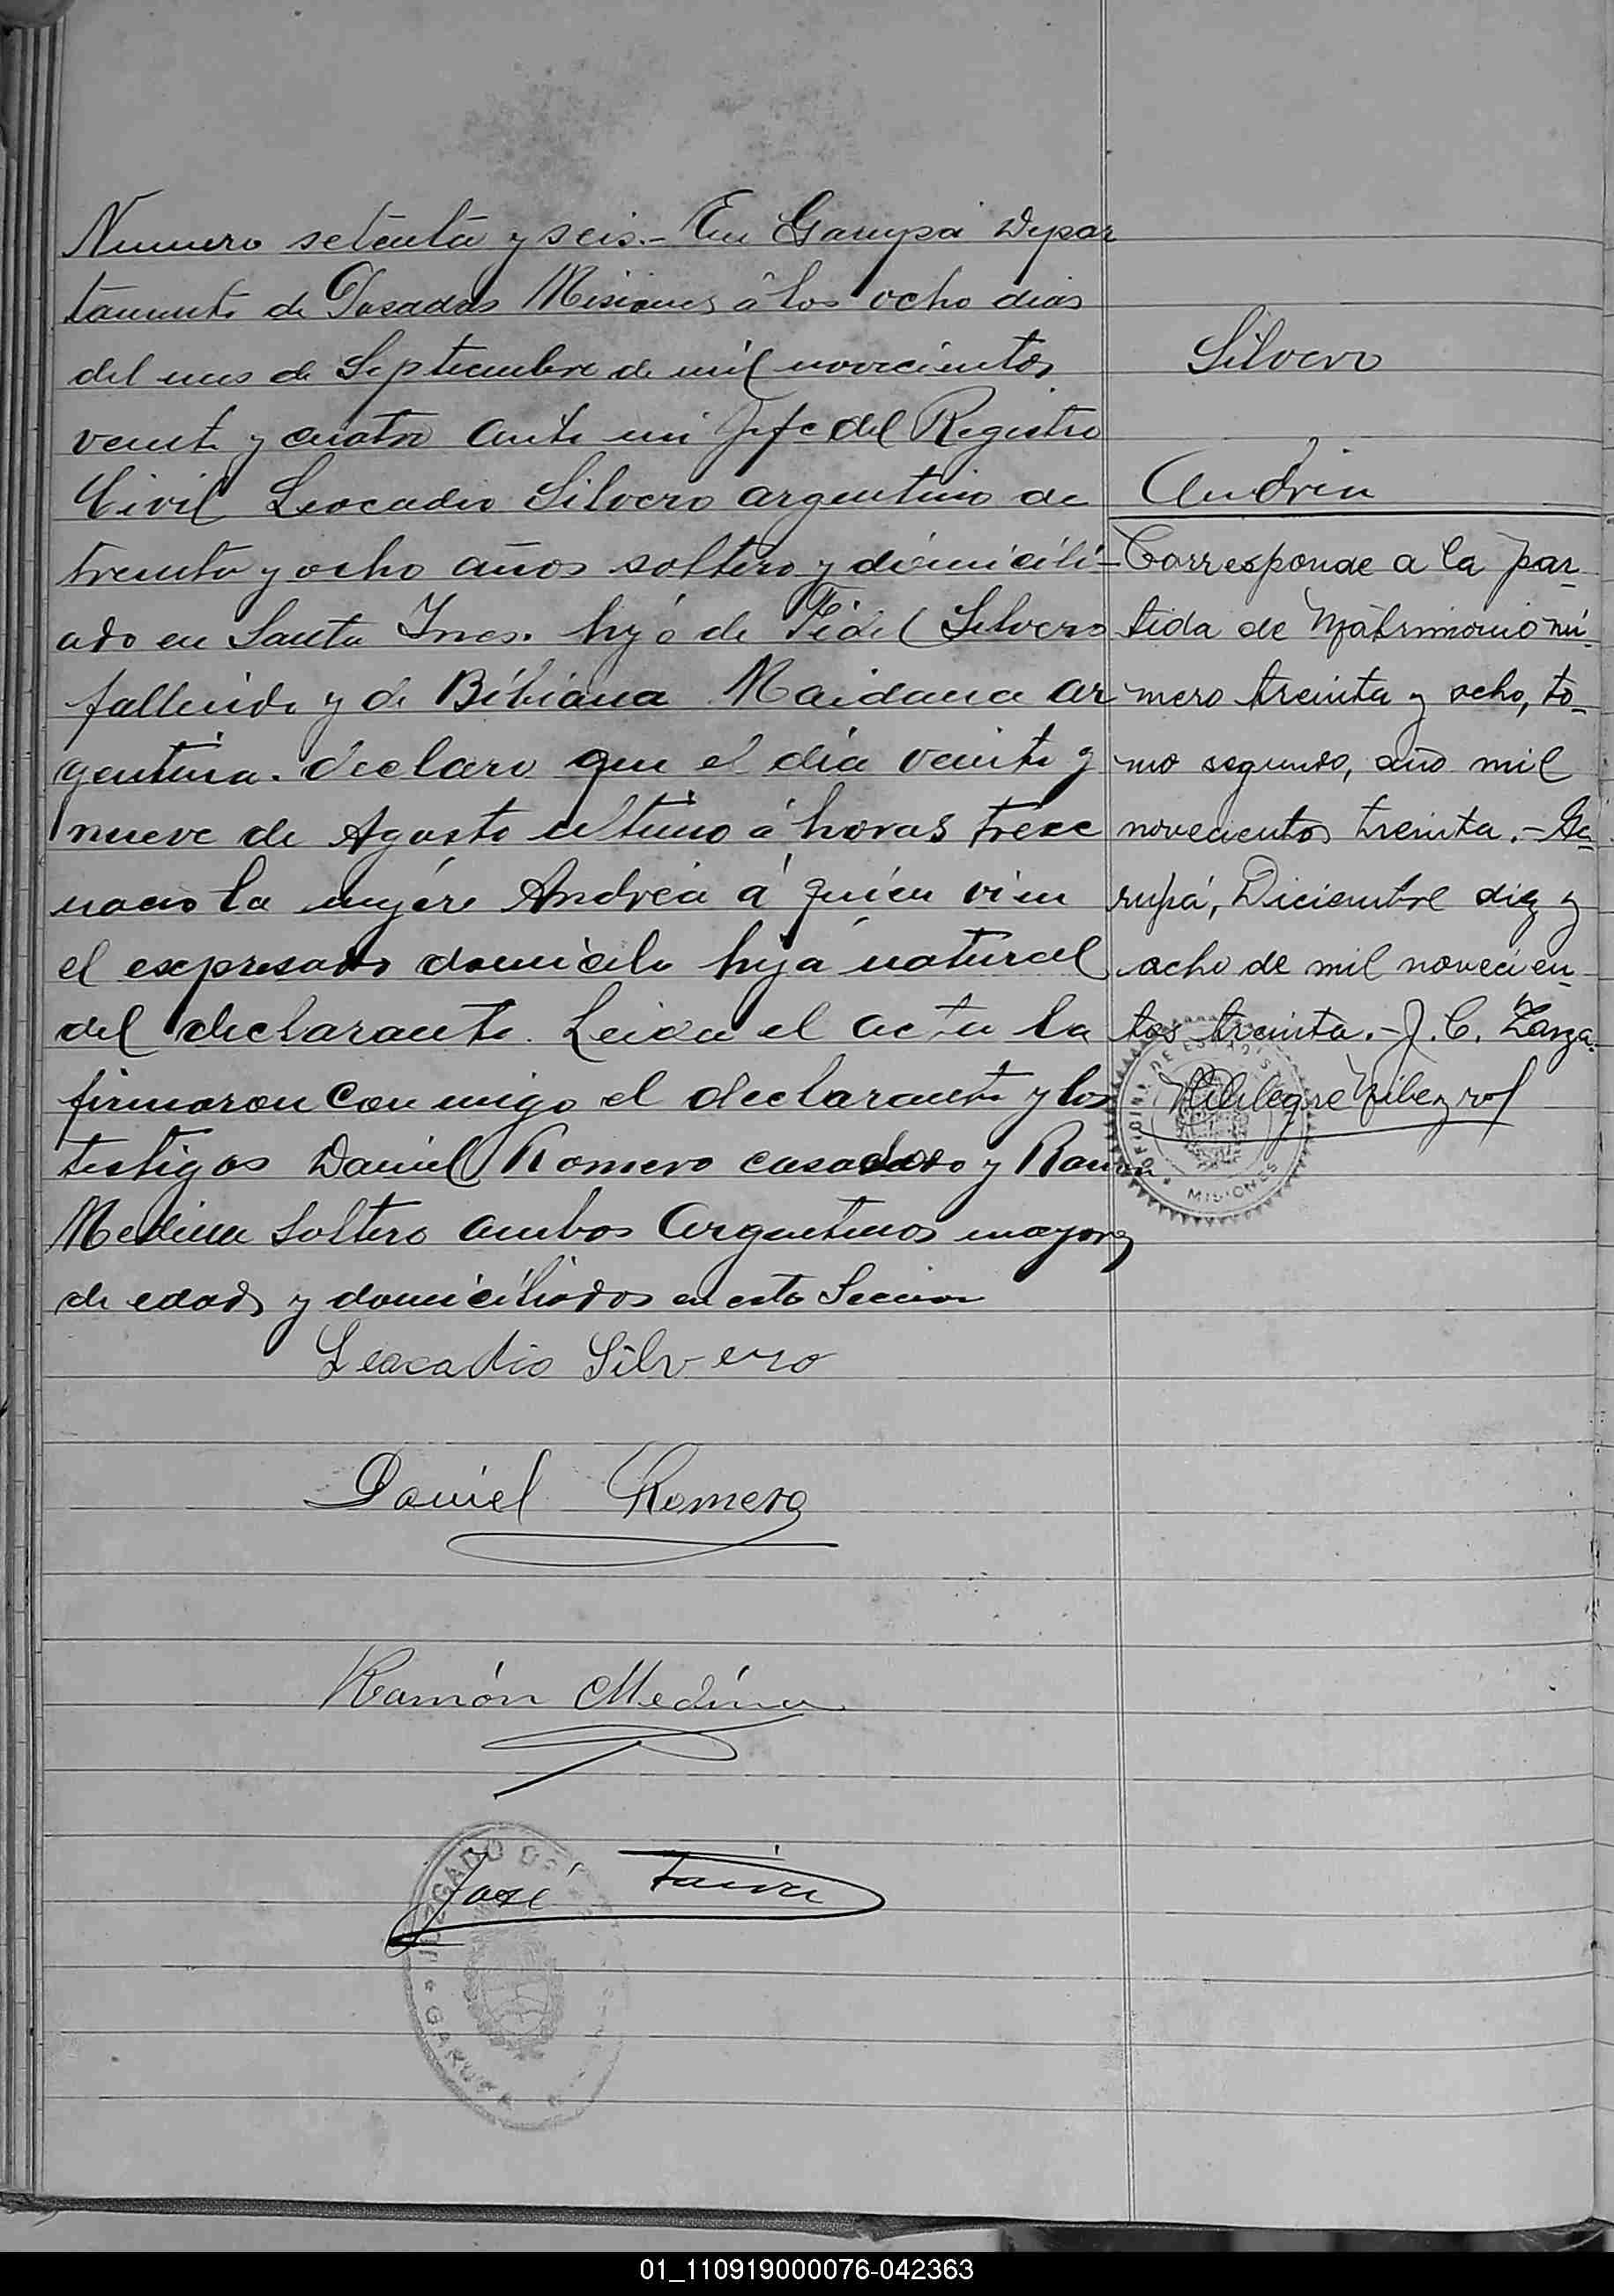 Numero setenta y seis.- En Garupá Depar
tamento de Posadas Misiones á los ocho dias
del mes de Septiembre de mil novecientos
veinte y cuatro ante mi Jefe del Registro
Civil Leocadio Silvero argentino de
treinta y ocho años soltero y domicili-
ado en Santa Ines. hijo de Fidel Silvero
fallecido y de Bibiana Maidana ar
gentina. declaro que el día veinte y
nueve de Agosto ultimo á horas trece
nacio la mujére Andréa á quien vi en
el expresado domicilo hija natural
del declarante. Leida el acta la
firmaron con migo el declarante y los
testigos Daniel Romero casado y Ramon
Medina Soltero ambos Argentinos mayores
de edad y domiciliados en esta Seccion
Leocadio Silvero
Daniel Romero
Ramón Medina
José
JUZGADO DE
GARUPA
Silvero
Andrea
Corresponde a la par-
tida de Matrimonio nú-
mero treinta y ocho, to-
mo segundo, año mil
novecientos treinta.- Ga-
rupá, Diciembre diez y
ocho de mil novecien-
tos treinta.- J. C.
OFICINA DE ESTADISTICA
MISIONES
01_110919000076-042363